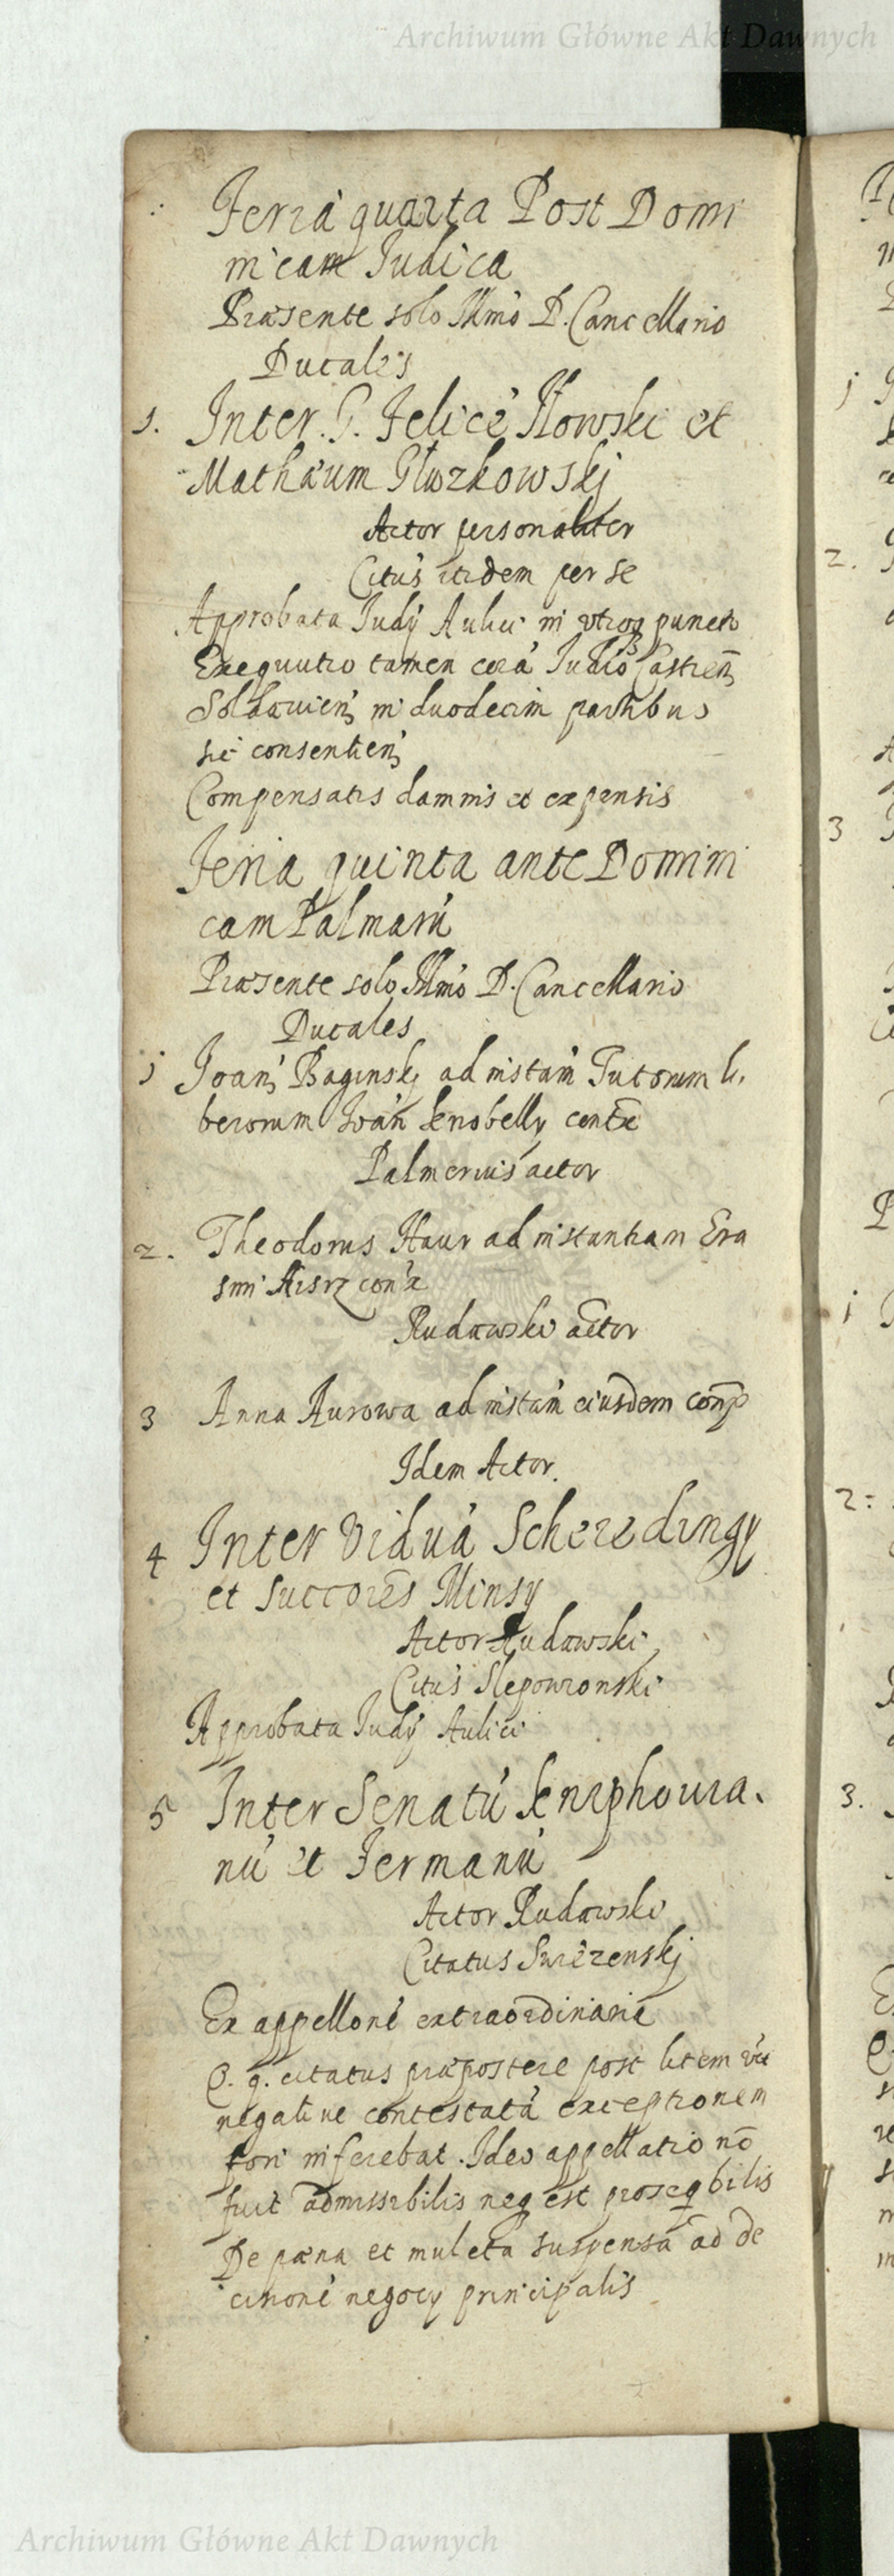 Archiwum Główne Akt Dawnych
Feria quarta Post Domi
nicam Iudica
Præsente solo Illmo D. Cancellario
Ducales
1. Inter G. Felicē Iłowski et
Mathæum Głuzkowskj
Actor personaliter
Citus itidem per se
Approbata Iudÿ Aulici in vtroq puncto
Exequutio tamen cora Iudio Castren
Soldauien in duodecim partibus
sic consentien
Compensatis damnis et expensis
Feria quinta ante Domini
cam Palmarū
Præsente solo Illmo D. Cancellario
Ducales
j Ioan Baginskj ad instam Tutorum li,
berorum Ioan contͣ
Palmernis actor
2. Theodorus Haur ad instantiam Era
smi conͣ
Rudawski actor
3 Anna Aurowa ad instam eiusdem conp
Idem Actor.
4 Inter Viduā Scheredingy
et succores Minsy
Actor Rudawski
Citus Slepowronski
Approbata Iudÿ Aulici
5 Inter Senatū Kniphouia.
nū et Fermanū
Actor Rudawski
Citatus Swiezenskj
Ex appellone extraordinaria
Q. q. citatus præpostere post litem
negatiue contestatā exceptionem
fori inferebat. Ideo appellatio nō
fuit admissibilis neq est proseqbilis
De pæna et mulcta suspensa ad de
cisionē negocy principalis
j
2.
3
j
2:
3.
Archiwum Główne Akt Dawnych